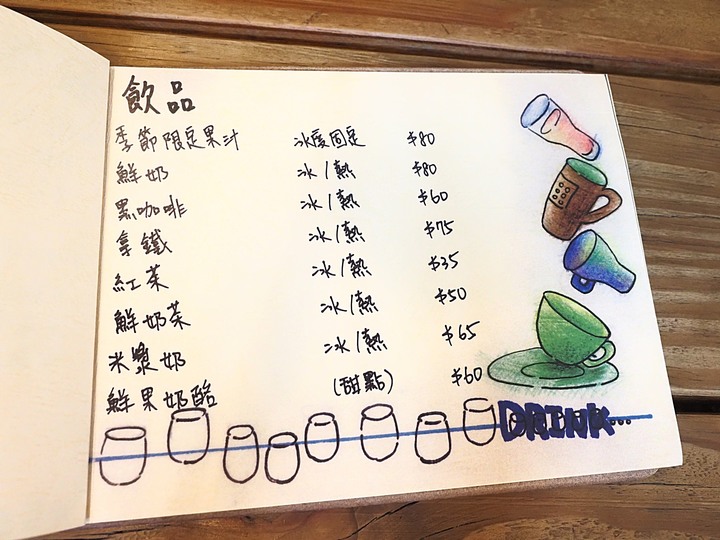 飲品
季節限定果汁 冰度固定 $80
鮮奶 冰/熱 $80
黑咖啡 冰/熱 $60
拿鐵 冰/熱 $75
紅茶 冰/熱 $35
鮮奶茶 冰/熱 $50
米漿奶 冰/熱 $65
鮮果奶酪 (甜點) $60
DRINK...